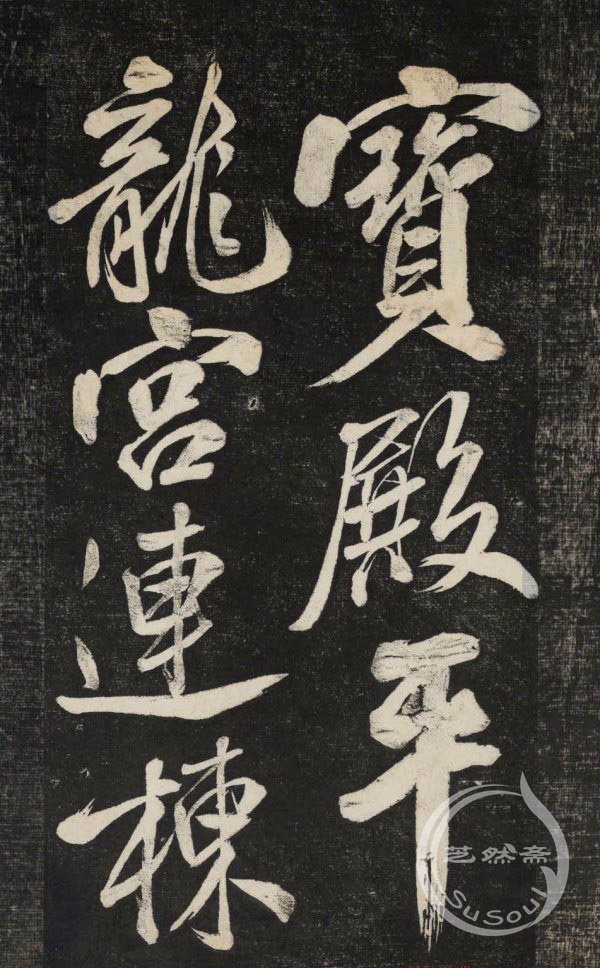 寶殿平
龍宮連棟
芝然斋
SuSoul